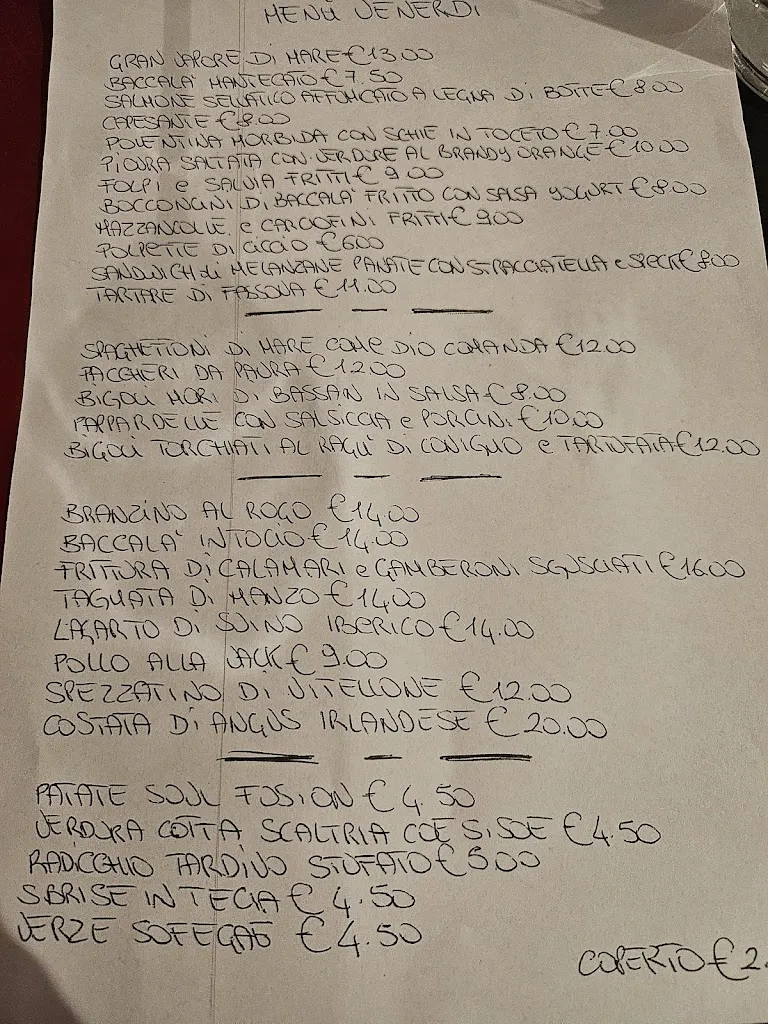 MENÙ VENERDI
GRAN VAPORE DI MARE € 13.00
BACCALA' MANTECATO € 7.50
SALMONE SELVATICO AFFUMICATO A LEGNA DI BOTTE € 8.00
CAPESANTE € 8.00
POLENTINA MORBIDA CON SCHIE IN TOCETO € 7.00
PIOVRA SALTATA CON VERDURE AL BRANDY ORANGE € 10.00
FOLPI e SALVIA FRITTI € 9.00
BOCCONCINI DI BACCALA' FRITTO CON SALSA YOGURT € 8.00
MAZZANCOLLE e CARCIOFINI FRITTI € 9.00
POLPETTE DI CICCIO € 6.00
SANDWICH di MELANZANE PANATE CON STRACCIATELLA e SPECK € 8.00
TARTARE DI FASSONA € 11.00
SPAGHETTONI DI MARE COME DIO COMANDA € 12.00
PACCHERI DA PAURA € 12.00
BIGOLI MORI DI BASSAN IN SALSA € 8.00
PAPPARDELLE CON SALSICCIA e PORCINI € 10.00
BIGOLI TORCHIATI AL RAGU' DI CONIGLIO e TARTUFATA € 12.00
BRANZINO AL ROGO € 14.00
BACCALA' IN TOCIO € 14.00
FRITTURA DI CALAMARI e GAMBERONI SGUSCIATI € 16.00
TAGLIATA DI MANZO € 14.00
LAGARTO DI SUINO IBERICO € 14.00
POLLO ALLA JACK € 9.00
SPEZZATINO DI VITELLONE € 12.00
COSTATA DI ANGUS IRLANDESE € 20.00
PATATE SOUL FUSION € 4.50
VERDURA COTTA SCALTRIA COE SISOE € 4.50
RADICCHIO TARDIVO STUFATO € 5.00
SBRISE IN TECIA € 4.50
VERZE SOFEGAE € 4.50
COPERTO € 2.